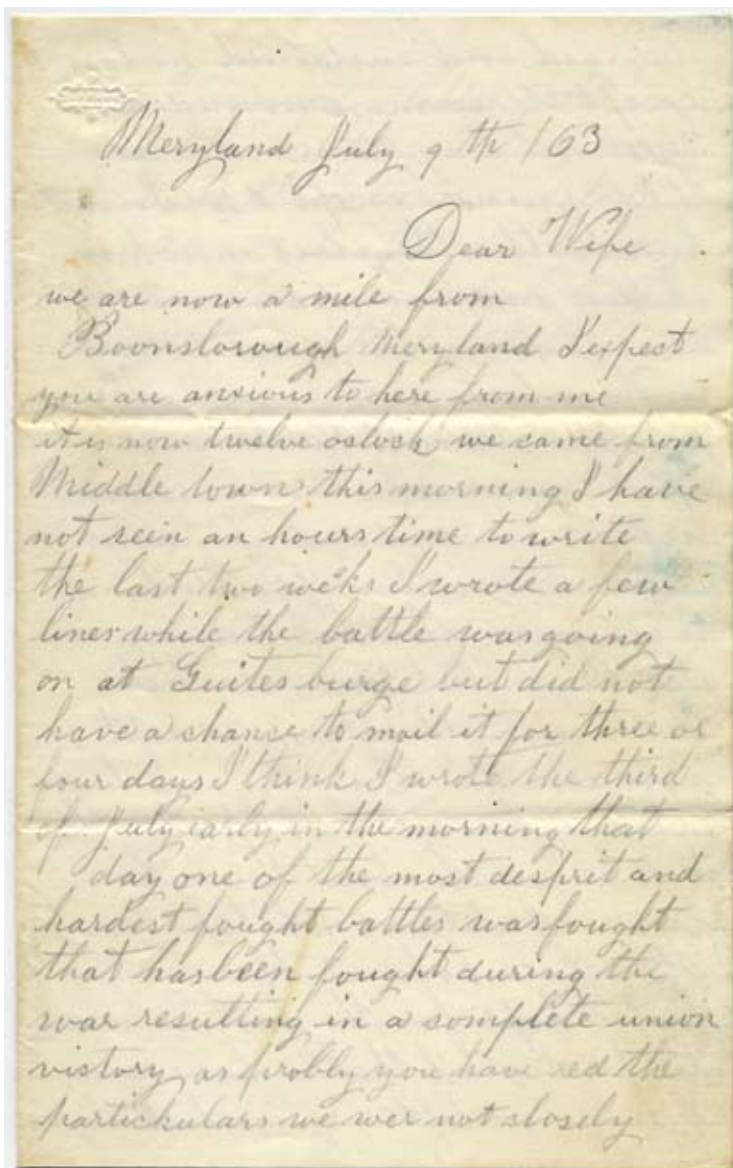 Meryland July 9 th /63
Dear Wife
we are now a mile from
Boonsborough Meryland I expect
you are anxious to here from me
it is now twelve oclock we came from
Middle town this morning I have
not seen an hours time to write
the last two weeks I wrote a few
lines while the battle was going
on at Guites burge but did not
have a chance to mail it for three or
four days I think I wrote the third
of July early in the morning that
day one of the most desprit and
hardest fought battles was fought
that has been fought during the
war resulting in a complete union
victory as probly you have red the
partickulars we wer not closely